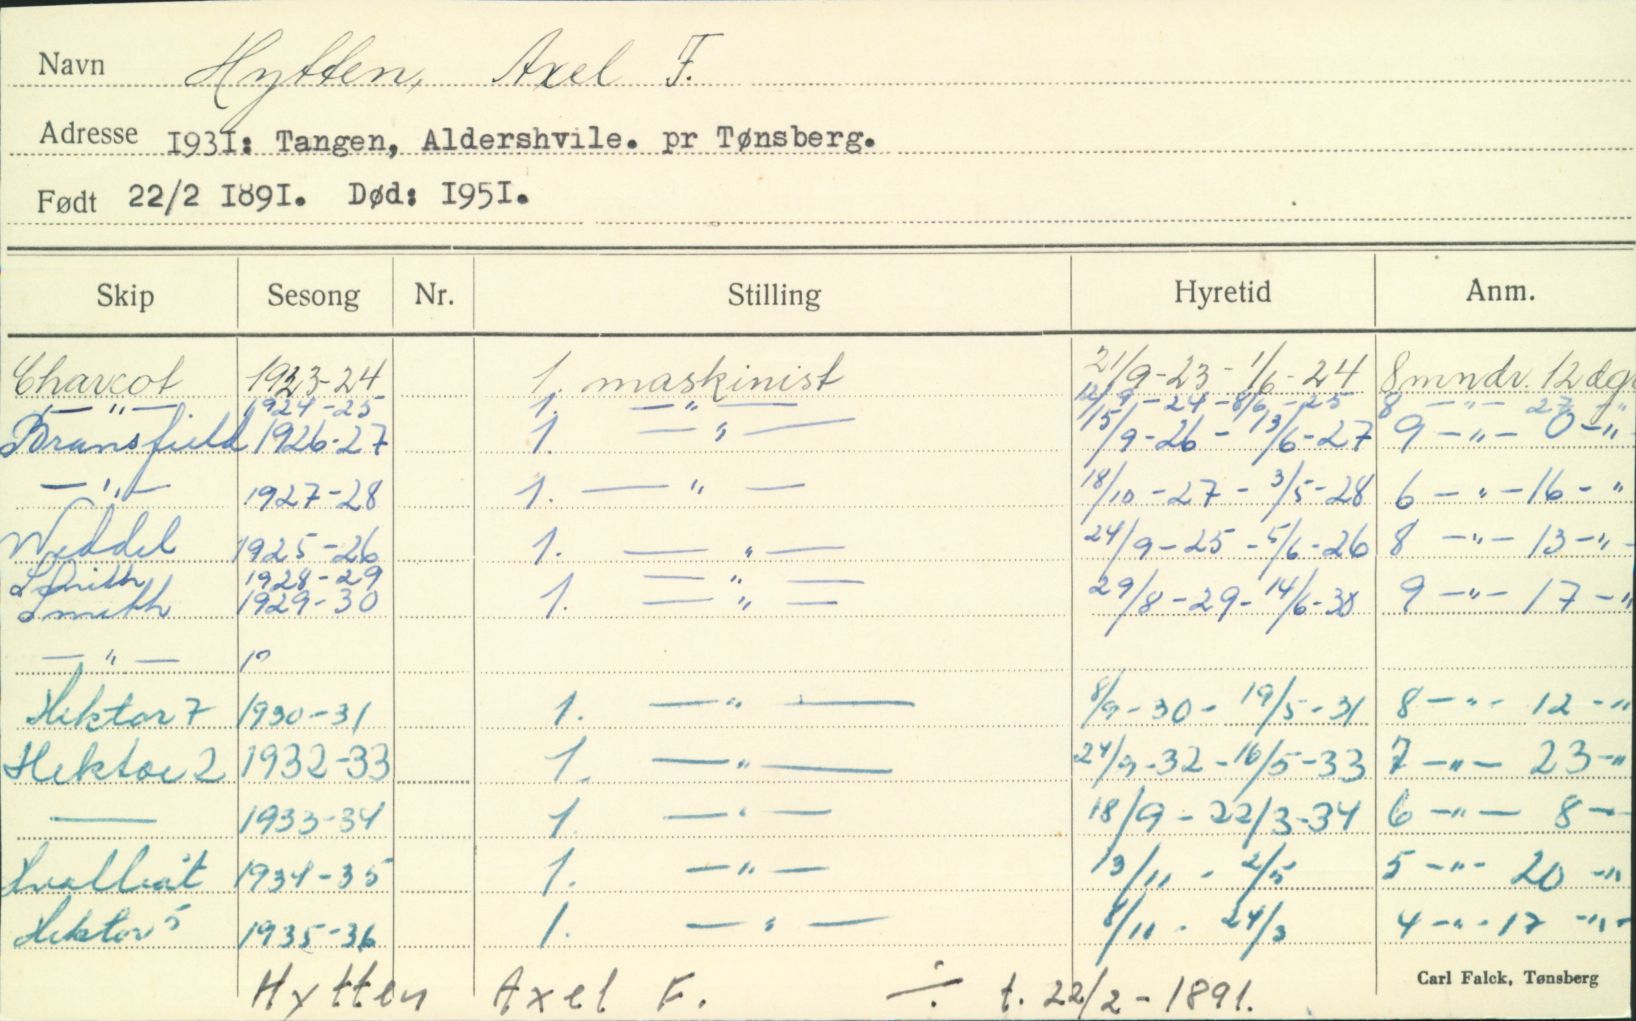 Navn Hytten, Axel F.
Adresse I93I: Tangen, Aldershvile. pr Tønsberg.
Født 22/2 I89I. Død: I95I.
Skip Sesong Nr. Stilling Hyretid Anm.
Charcot 1923-24 1. maskinist 21/9-23 - 1/6-24 8 mndr. 12 dgr
—"— 1924-25 1. —"— 12/9-24 - 8/6-25 8 —"— 27 "
Bransfield 1926-27 1. —"— 15/9-26 - 13/6-27 9 —"— 0 —"—
—"— 1927-28 1. —"— 18/10-27 - 3/5-28 6 —"— 16 - "
Weddel 1925-26 1. —"— 24/9-25 - 5/6-26 8 —"— 13 —"—
Smith 1928-29 —"—
Smith 1929-30 1. —"— 29/8-29 - 14/6-30 9 —"— 17 —"
—"—
Hektor 7 1930-31 1. —"— 8/9-30 - 19/5-31 8 —"— 12 —"
Hektor 2 1932-33 1. —"— 24/9-32 - 16/5-33 7 —"— 23 —"
—— 1933-34 1. —"— 18/9 - 22/3-34 6 —"— 8 —
1934-35 1. —"— 13/11 - 2/5 5 —"— 20 —"
Hektor 5 1935-36 1. —"— 8/11 - 24/3 4 —"— 17 —"—
Hytten Axel F. ÷ f. 22/2-1891.
Carl Falck, Tønsberg